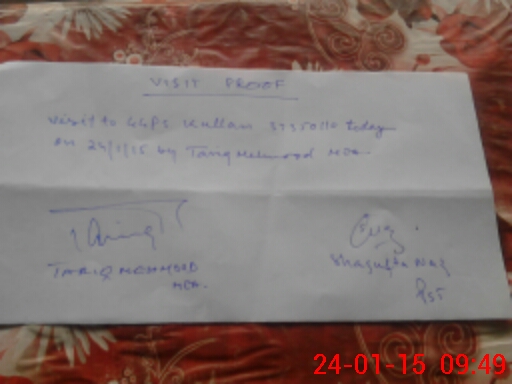 VISIT PROOF
Visit to GGPS Kullan 37350110 today
on 24/1/15 by Tariq Mehmood MEA.
TARIQ MEHMOOD
MEA.
Shagufta Naz
PST
24-01-15 09:49